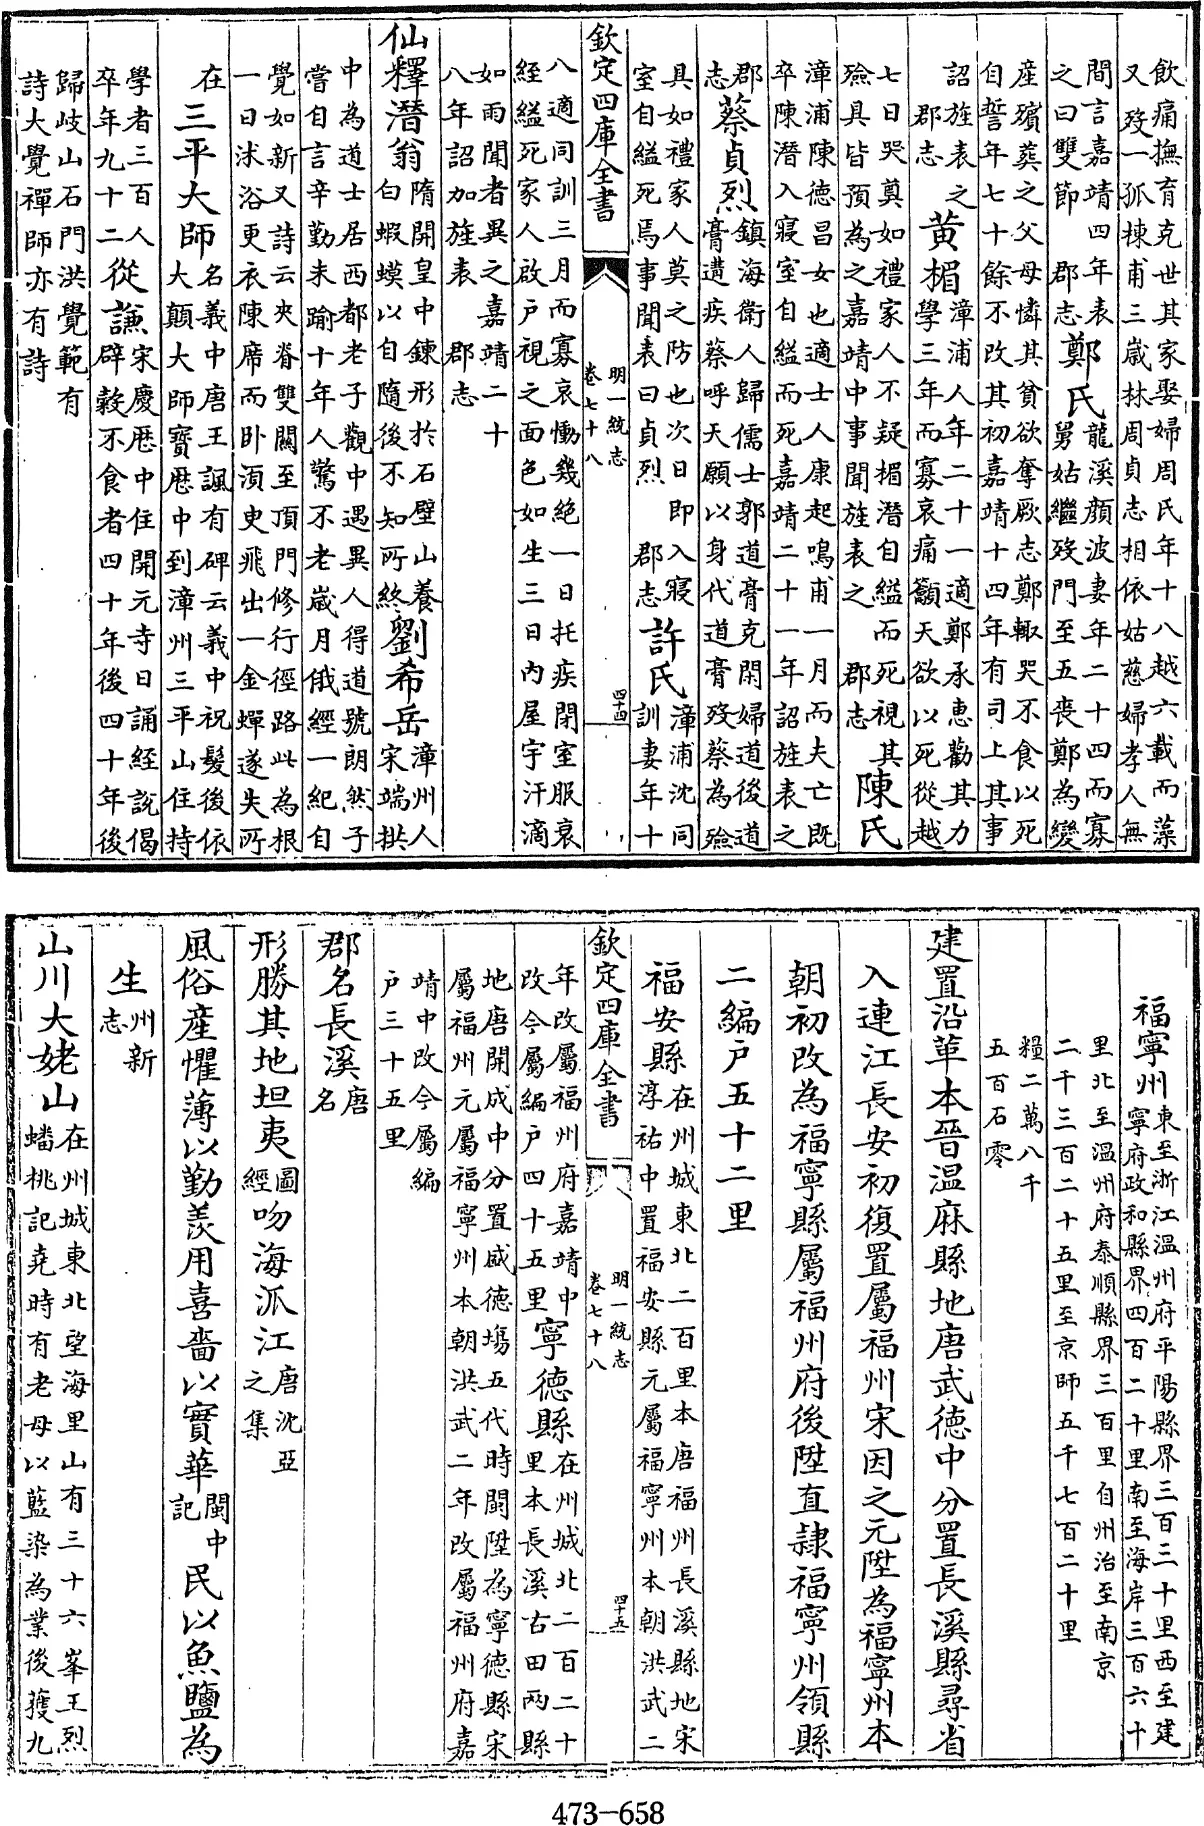 飲痛撫育克世其家娶婦周氏年十八越六載而藻
又歿一孤棟甫三歲林周貞志相依姑慈婦孝人無
間言嘉靖四年表鄭氏龍溪顔波妻年二十四而寡
之曰雙節 郡志鄭氏舅姑繼歿門至五喪鄭為變
産殯葬之父母憐其貧欲奪厥志鄭輙哭不食以死
自誓年七十餘不改其初嘉靖十四年有司上其事
詔旌表之黄楣漳浦人年二十一適鄭承恵勸其力
郡志黄楣學三年而寡哀痛籲天欲以死從越
七日哭奠如禮家人不疑楣潛自縊而死視其
殮具皆預為之嘉靖中事聞旌表之 郡志陳氏
漳浦陳徳昌女也適士人康起鳴甫一月而夫亡既
卒陳潛入寢室自縊而死嘉靖二十一年詔旌表之
郡志蔡貞烈鎮海衛人歸儒士郭道膏克閑婦道後道
膏遘疾蔡呼天願以身代道膏歿蔡為殮
具如禮家人莫之防也次日即入寢
室自縊死焉事聞表曰貞烈 郡志許氏漳浦沈同
訓妻年十
欽定四庫全書
明一統志
卷七十八
四十四
八適同訓三月而寡哀慟幾絶一日托疾閉室服衰
絰縊死家人啟户視之面色如生三日内屋宇汗滴
如雨聞者異之嘉靖二十
八年詔加旌表 郡志
仙釋潛翁隋開皇中鍊形於石壁山養
白蝦蟆以自隨後不知所終劉希岳漳州人
宋端拱
中為道士居西都老子觀中遇異人得道號朗然子
嘗自言辛勤未踰十年人驚不老歲月俄經一紀自
覺如新又詩云夾脊雙關至頂門修行徑路此為根
一日沭浴更衣陳席而卧湏臾飛出一金蟬遂失所
在三平大師名義中唐王諷有碑云義中祝髮後依
大顛大師寳厯中到漳州三平山住持
學者三百人
卒年九十二從謙宋慶厯中住開元寺日誦經説偈
辟穀不食者四十年後四十年後
歸岐山石門洪覺範有
詩大覺禪師亦有詩
福寧州東至浙江温州府平陽縣界三百三十里西至建
寧府政和縣界四百二十里南至海岸三百六十
里北至温州府泰順縣界三百里自州治至南京
二千三百二十五里至京師五千七百二十里
糧二萬八千
五百石零
建置沿革本晉温麻縣地唐武徳中分置長溪縣尋省
入連江長安初復置屬福州宋因之元陞為福寧州本
朝初改為福寧縣屬福州府後陞直隷福寧州領縣
二編户五十二里
福安縣在州城東北二百里本唐福州長溪縣地宋
淳祐中置福安縣元屬福寧州本朝洪武二
欽定四庫全書
明一統志
卷七十八
四十五
年改屬福州府嘉靖中寧徳縣在州城北二百二十
改今屬編户四十五里寧徳縣里本長溪古田兩縣
地唐開成中分置感徳塲五代時閩陞為寧徳縣宋
屬福州元屬福寧州本朝洪武二年改屬福州府嘉
靖中改今屬編
户三十五里
郡名長溪唐
名
形勝其地坦夷圖
經吻海派江唐沈亞
之集
風俗産懼薄以勤羨用喜嗇以實華閩中
記民以魚鹽為
生州新
志
山川大姥山在州城東北望海里山有三十六峯王烈
蟠桃記堯時有老母以藍染為業後獲九
473-658